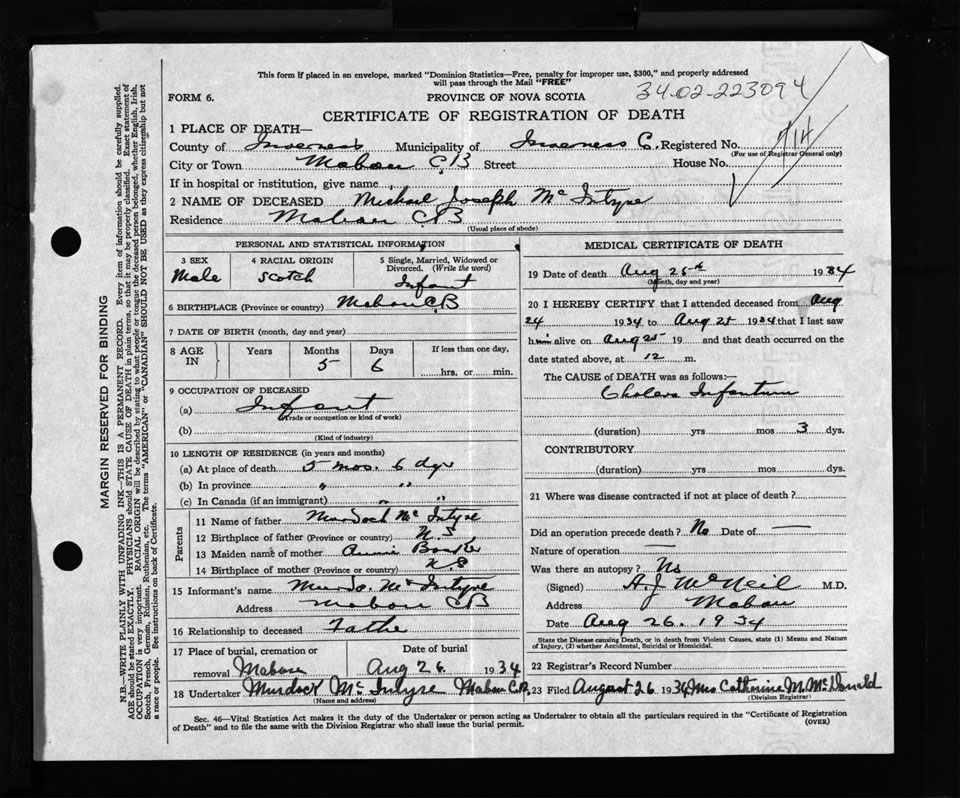 This form if placed in an envelope, marked "Dominion Statistics—Free, penalty for improper use, $300," and properly addressed
will pass through the Mail "FREE"
34-02-223094
FORM 6.
PROVINCE OF NOVA SCOTIA
CERTIFICATE OF REGISTRATION OF DEATH
1 PLACE OF DEATH—
County of Inverness Municipality of Inverness C. Registered No. 714
(For use of Registrar General only)
City or Town Mabou C,B Street House No.
If in hospital or institution, give name
2 NAME OF DECEASED Michael Joseph Mc Intyre
Residence Mabou CB
(Usual place of abode)
PERSONAL AND STATISTICAL INFORMATION
3 SEX 4 RACIAL ORIGIN 5 Single, Married, Widowed or Divorced. (Write the word)
Male Scotch Infant
6 BIRTHPLACE (Province or country) Mabou CB
7 DATE OF BIRTH (month, day and year)
8 AGE IN Years Months Days If less than one day,
5 6 hrs. or min.
9 OCCUPATION OF DECEASED
(a) Infant
(Trade or occupation or kind of work)
(b)
(Kind of industry)
10 LENGTH OF RESIDENCE (in years and months)
(a) At place of death 5 mos. 6 dys
(b) In province " "
(c) In Canada (if an immigrant) " "
Parents
11 Name of father Murdoch Mc Intyre
12 Birthplace of father (Province or country) N.S
13 Maiden name of mother Annie
14 Birthplace of mother (Province or country) N.S
15 Informant's name Murdo. Mc Intyre
Address Mabou CB
16 Relationship to deceased Father
17 Place of burial, cremation or removal Mabou Date of burial Aug 26. 1934
18 Undertaker Murdock Mc Intyre Mabou C.B.
(Name and address)
MEDICAL CERTIFICATE OF DEATH
19 Date of death Aug 25th 1934
(Month, day and year)
20 I HEREBY CERTIFY that I attended deceased from Aug
24 1934 to Aug 25 1934 that I last saw
him alive on Aug 25 19 and that death occurred on the
date stated above, at 12 m.
The CAUSE OF DEATH was as follows:—
Cholera Infantum
(duration) yrs mos 3 dys.
CONTRIBUTORY
(duration) yrs mos dys.
21 Where was disease contracted if not at place of death?
Did an operation precede death? No Date of —
Nature of operation —
Was there an autopsy? No
(Signed) A.J McNeil M.D.
Address Mabou
Date Aug 26. 1934
State the Disease causing Death, or in death from Violent Causes, state (1) Means and Nature
of Injury, (2) whether Accidental, Suicidal or Homicidal.
22 Registrar's Record Number
23 Filed August 26 1934 Mrs Catherine M. McDonald
(Division Registrar)
Sec. 46—Vital Statistics Act makes it the duty of the Undertaker or person acting as Undertaker to obtain all the particulars required in the "Certificate of Registration
of Death" and to file the same with the Division Registrar who shall issue the burial permit.
(OVER)
MARGIN RESERVED FOR BINDING
N.B.—WRITE PLAINLY WITH UNFADING INK—THIS IS A PERMANENT RECORD. Every item of information should be carefully supplied.
AGE should be stated EXACTLY. PHYSICIANS should STATE CAUSE OF DEATH in plain terms, so that it may be properly classified. Exact statement of
OCCUPATION is very important. RACIAL ORIGIN will be described by stating to what people or tongue the deceased person belonged, whether English, Irish,
Scotch, French, German, Russian, Ruthenian, etc. The terms "AMERICAN" or "CANADIAN" SHOULD NOT BE USED as they express citizenship but not
a race or people. See instructions on back of Certificate.